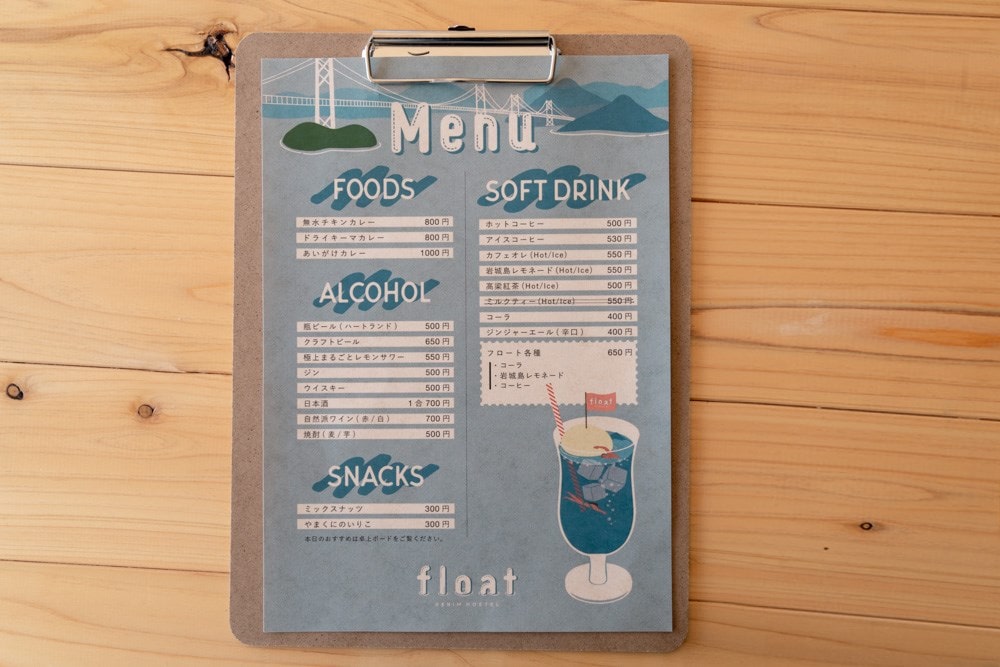 Menu
FOODS
無水チキンカレー 800円
ドライキーマカレー 800円
あいがけカレー 1000円
ALCOHOL
瓶ビール(ハートランド) 500円
クラフトビール 650円
極上まるごとレモンサワー 550円
ジン 500円
ウイスキー 500円
日本酒 1合 700円
自然派ワイン(赤/白) 700円
焼酎(麦/芋) 500円
SNACKS
ミックスナッツ 300円
やまくにのいりこ 300円
本日のおすすめは卓上ボードをご覧ください。
SOFT DRINK
ホットコーヒー 500円
アイスコーヒー 530円
カフェオレ(Hot/Ice) 550円
岩城島レモネード(Hot/Ice) 550円
高梁紅茶(Hot/Ice) 500円
ミルクティー(Hot/Ice) 550円
コーラ 400円
ジンジャーエール(辛口) 400円
フロート各種 650円
・コーラ
・岩城島レモネード
・コーヒー
float
float
DENIM HOSTEL